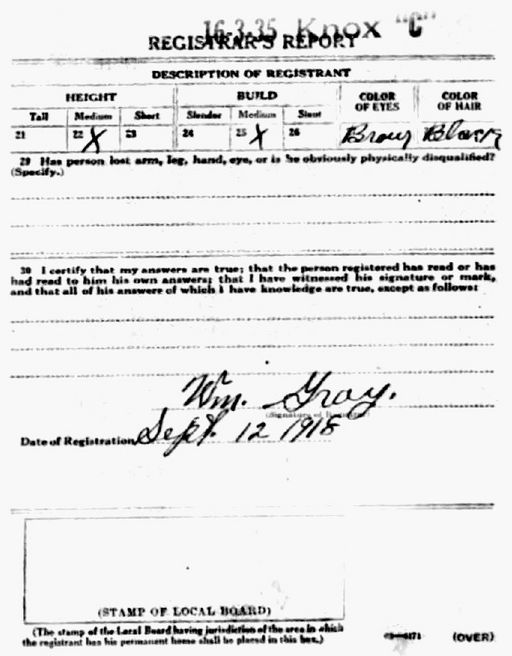 16-3-35 Knox "C"
REGISTRAR'S REPORT
DESCRIPTION OF REGISTRANT
HEIGHT BUILD COLOR OF EYES COLOR OF HAIR
Tall Medium Short Slender Medium Stout
21 22 X 23 24 25 X 26 Brown Black
29 Has person lost arm, leg, hand, eye, or is he obviously physically disqualified?
(Specify.)
30 I certify that my answers are true; that the person registered has read or has
had read to him his own answers; that I have witnessed his signature or mark,
and that all of his answers of which I have knowledge are true, except as follows:
Wm. Gray.
(Signature of Registrar)
Date of Registration Sept. 12 1918
(STAMP OF LOCAL BOARD)
(The stamp of the Local Board having jurisdiction of the area in which
the registrant has his permanent home shall be placed in this box.)
(OVER)